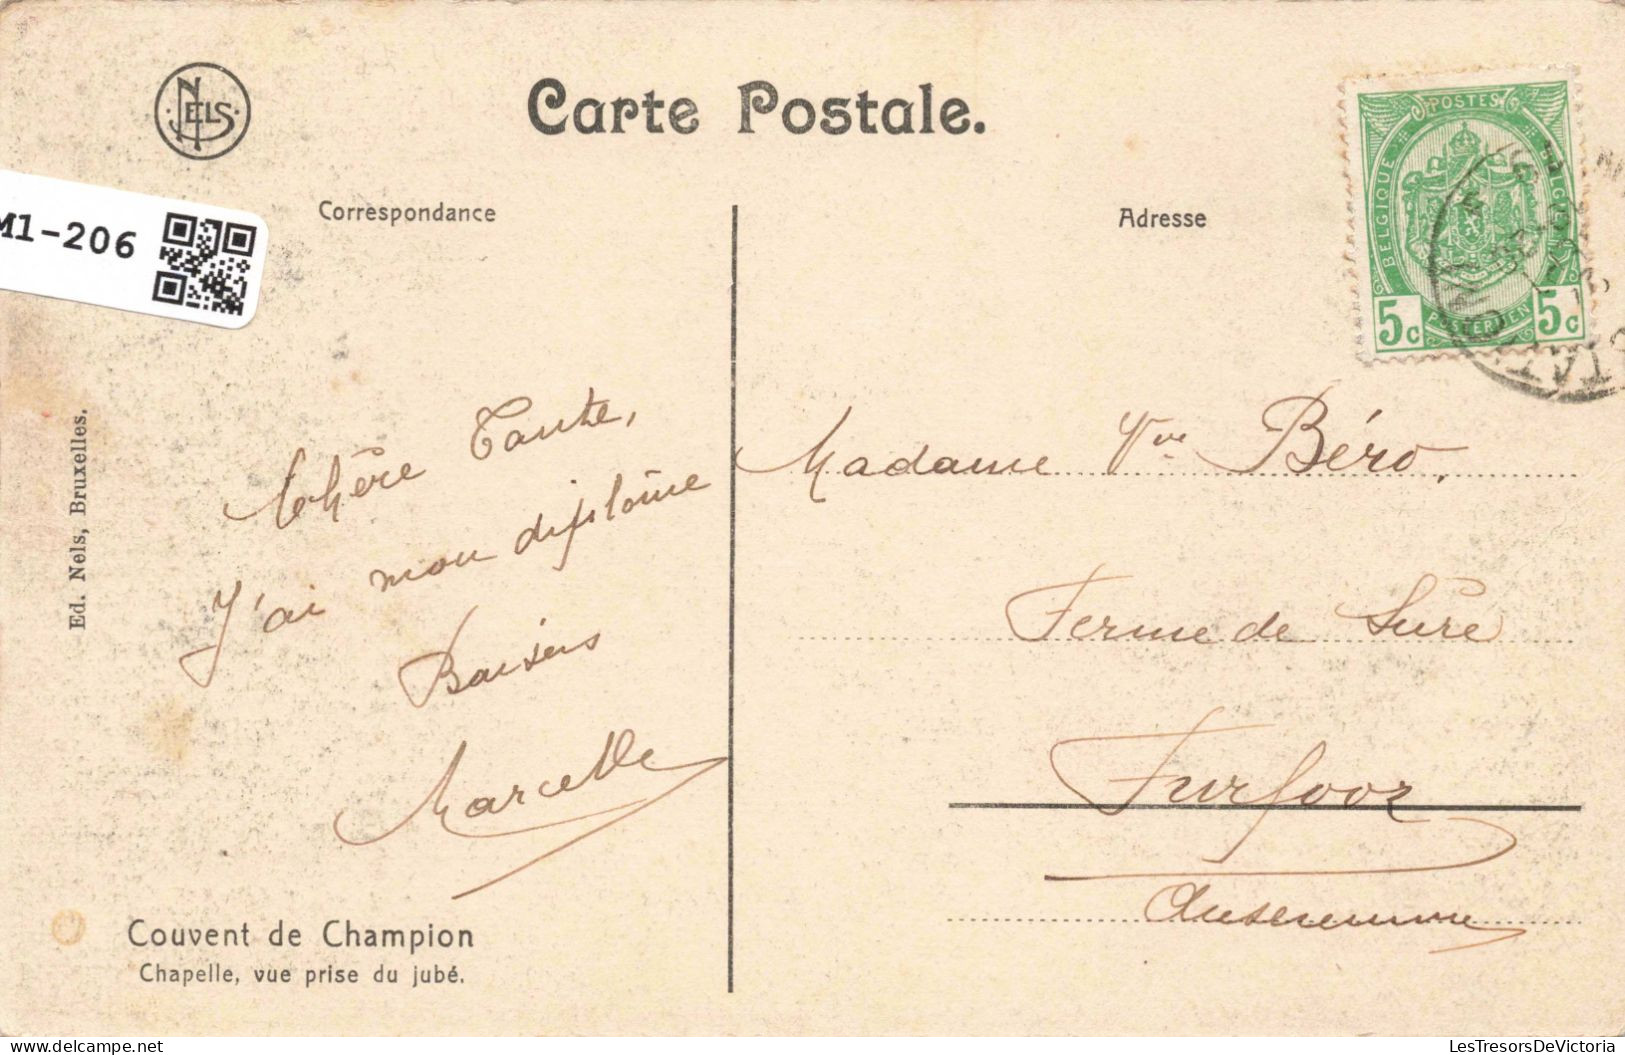 NELS
Carte Postale.
M1-206
Correspondance
Adresse
POSTES
BELGIQUE
BELGIE
POSTERIJEN
5c 5c
Ed. Nels, Bruxelles.
Chère Tante,
J'ai mon diplôme
Baisers
Marcelle
Madame Vve Béro,
Ferme de Sûre
Furfooz
Couvent de Champion
Chapelle, vue prise du jubé.
LesTresorsDeVictoria